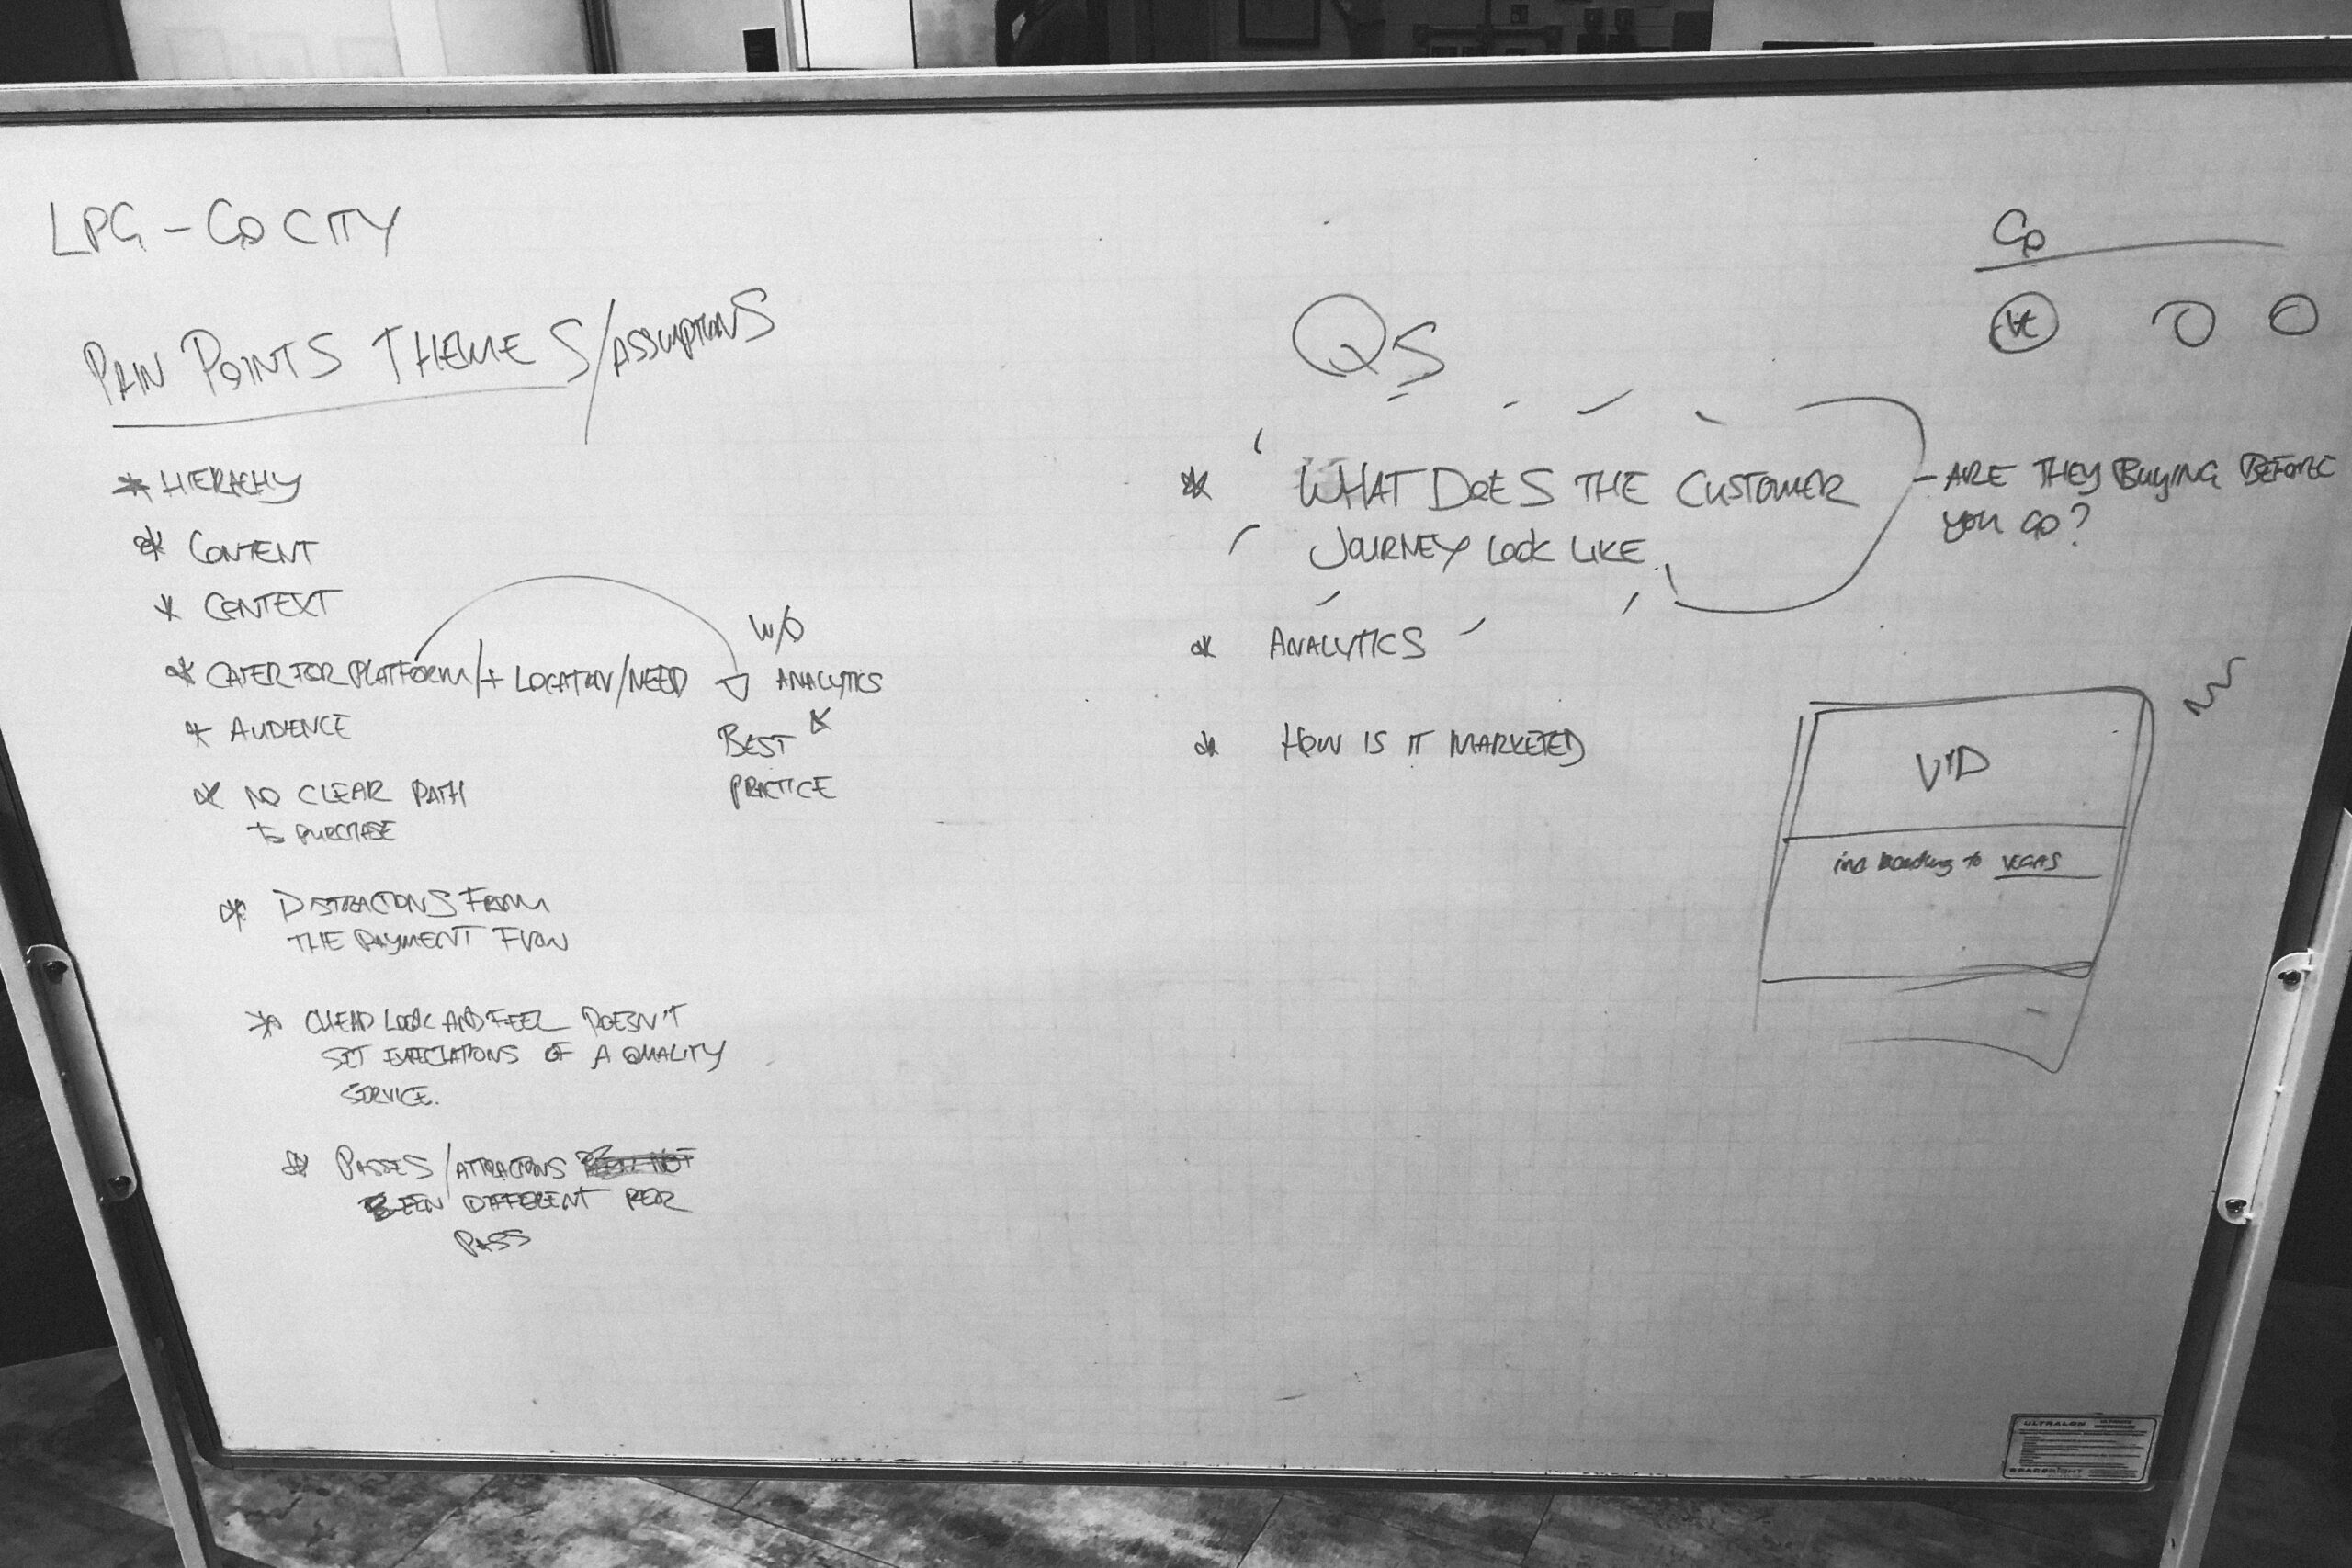 LPG - GO CITY
PAIN POINTS THEMES/ASSUMPTIONS
* HIERACHY
* CONTENT
* CONTEXT
* CATER FOR PLATFORM/+ LOCATION/NEED
W/O
ANALYTICS
&
BEST
PRACTICE
* AUDIENCE
* NO CLEAR PATH
TO PURCHASE
* DISTRACTIONS FROM
THE PAYMENT FLOW
* CHEAP LOOK AND FEEL DOESN'T
SET EXPECTATIONS OF A QUALITY
SERVICE.
* PASSES/ATTRACTIONS NOT
BEEN DIFFERENT PER
PASS
QS
* WHAT DOES THE CUSTOMER
JOURNEY LOOK LIKE
- ARE THEY BUYING BEFORE
YOU GO?
* ANALYTICS
* HOW IS IT MARKETED
GO
VID
to VEGAS
ULTRALON
SPACERIGHT